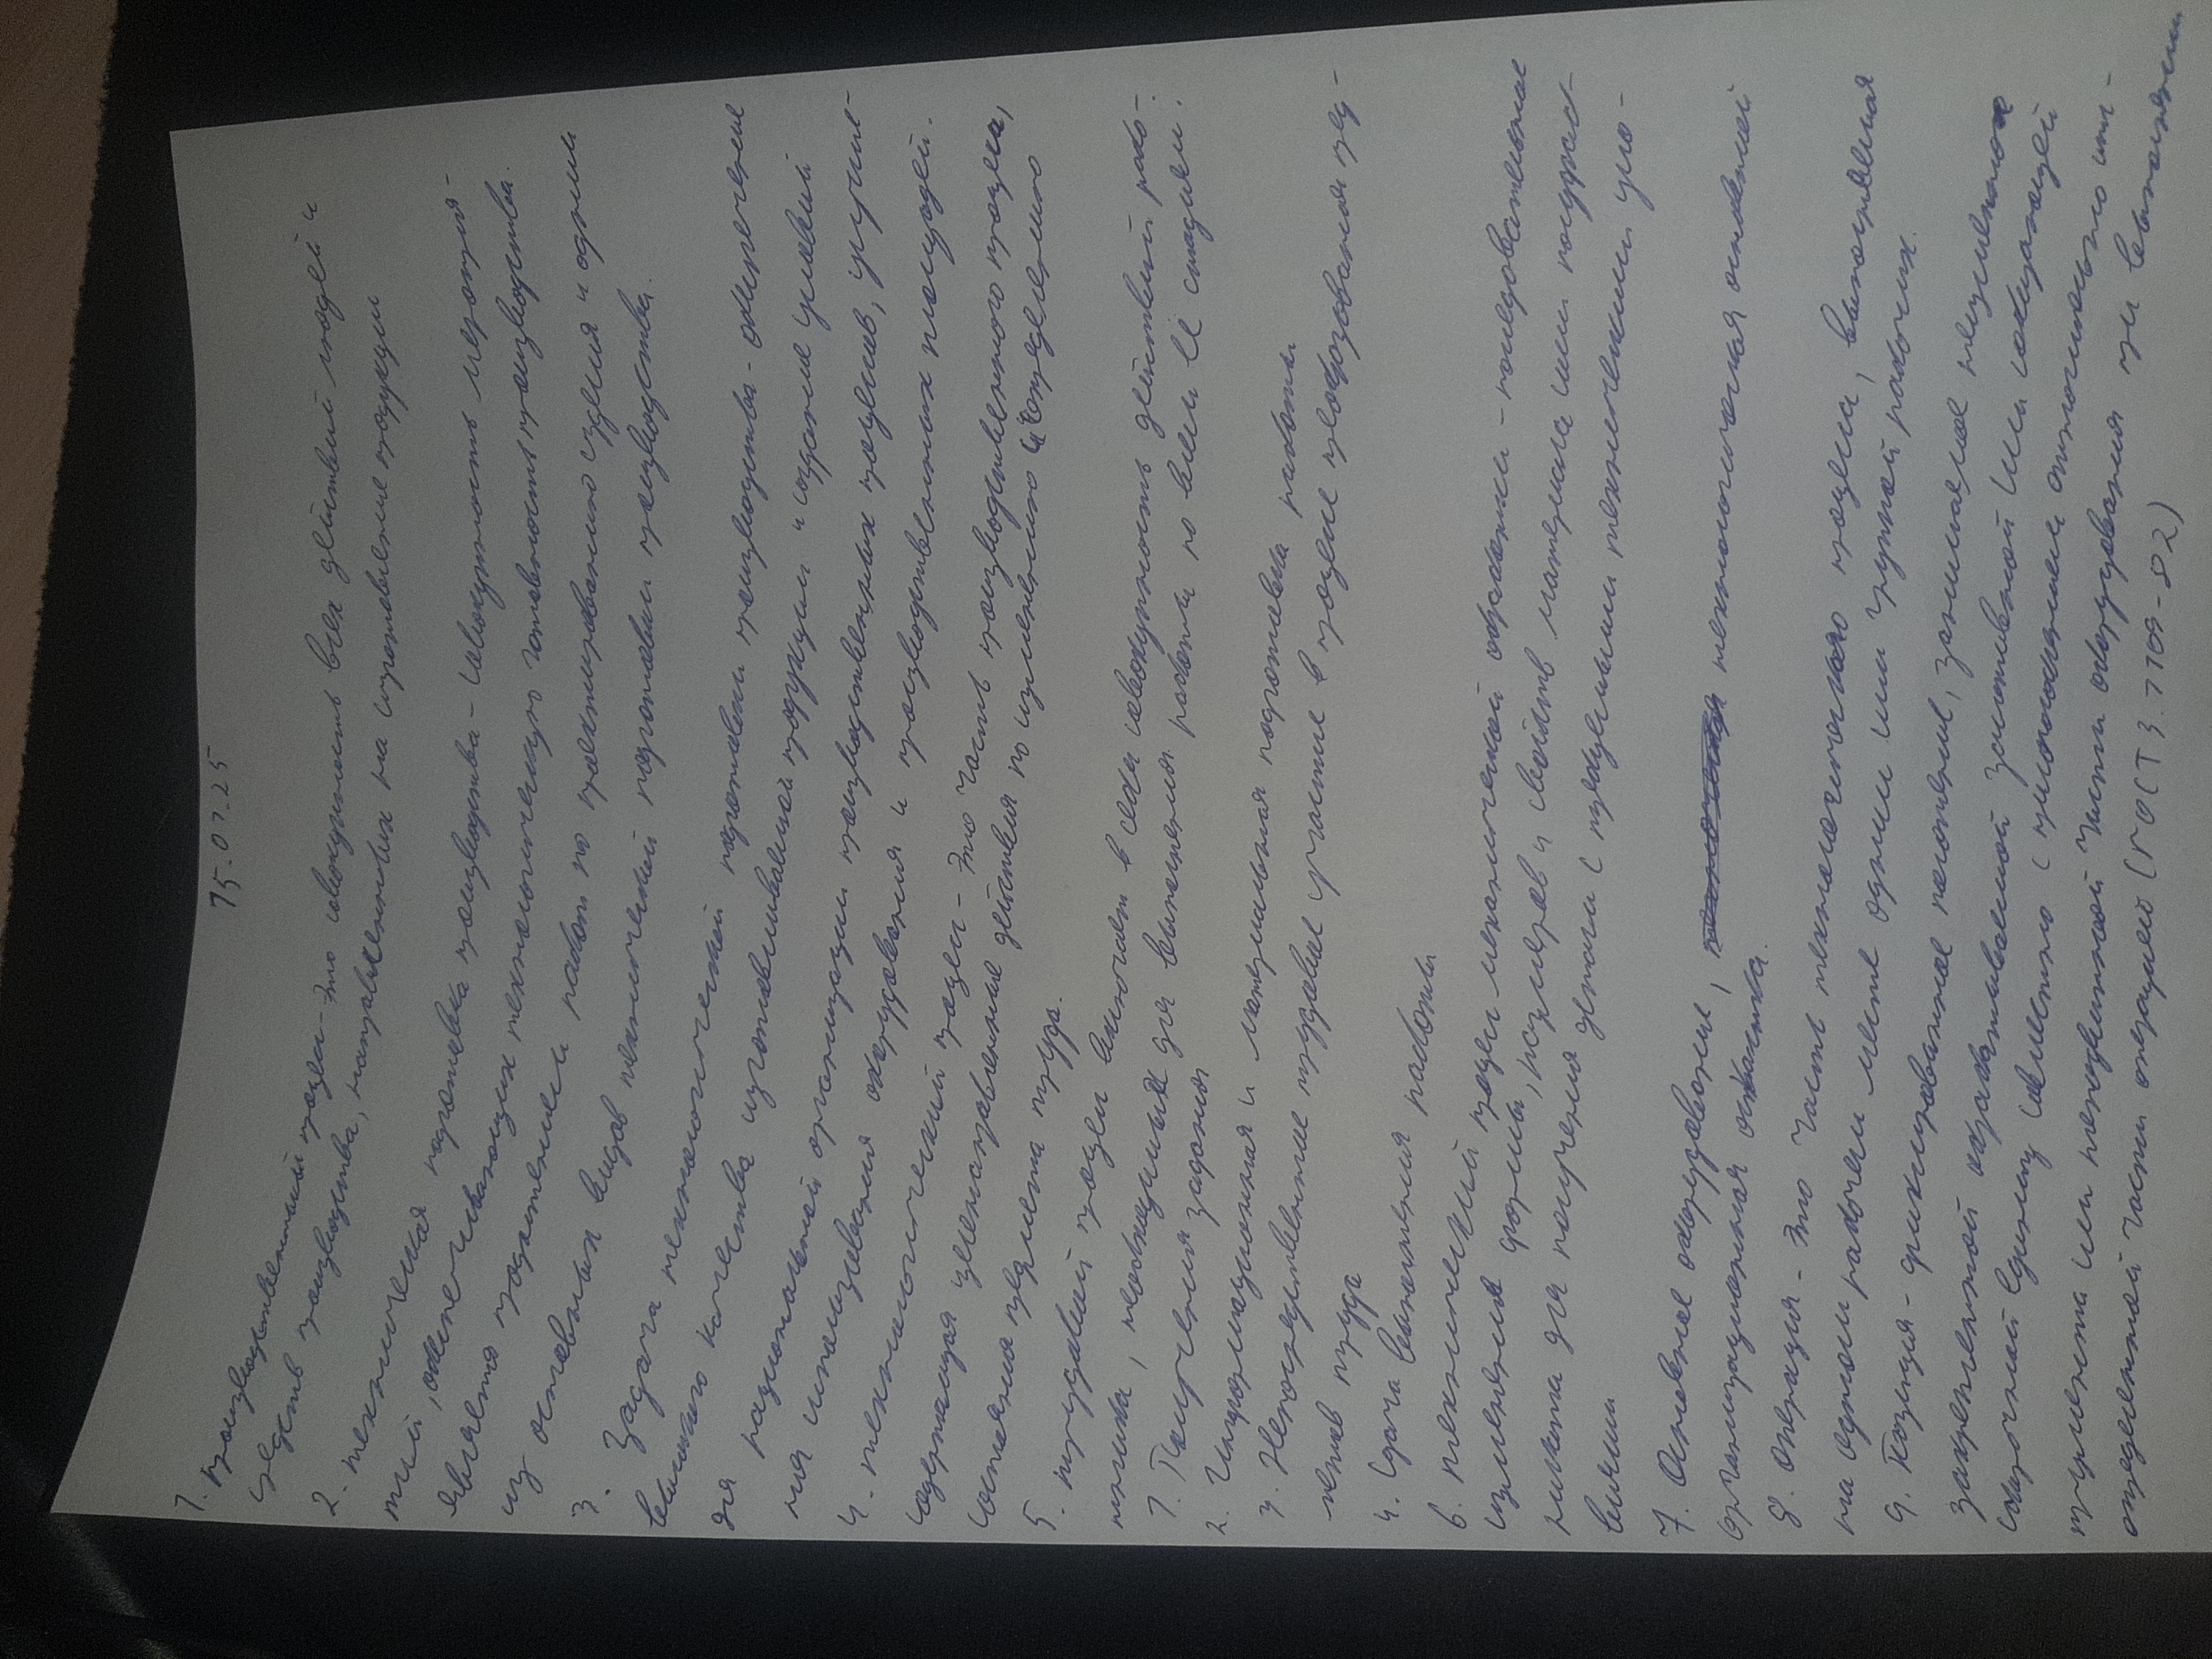 15.07.25
1. производственный процесс - это совокупность всех действий людей и
средств производства, направленных на изготовление продукции
2. техническая подготовка производства - совокупность мероприя-
тий, обеспечивающих технологическую готовность производства.
является продолжением работ по проектированию изделия и одним
из основных видов технической подготовки производства.
3. Задача технологической подготовки производства - обеспечение
высокого качества изготавливаемой продукции и создание условий
для рациональной организации производственных процессов, улучше-
ния использования оборудования и производственных площадей.
4. технологический процесс - это часть производственного процесса,
содержащая целенаправленные действия по изменению и определению
состояния предмета труда.
5. трудовой процесс включает в себя совокупность действий рабо-
тника, необходимых для выполнения работы по всем её стадиям:
1. Получения задания
2. Информационная и материальная подготовка работы
3. Непосредственные трудовые участие в процессе преобразования пред-
метов труда
4. Сдача выполнения работы
6. технический процесс механической обработки - последовательное
изменение формы, размеров и свойств материала или полуфаб-
риката для получения детали с придаными техническими усло-
виями
7. Основное оборудование, технологическая основной
организационная оснастка.
8. операция - это часть технологического процесса, выполняемая
на одном рабочем месте одним или группой рабочих.
9. Позиция - фиксированное положение, занимаемое неизменно
закрепленной обрабатываемой заготовкой или собираемой
сборочной единицу совместно с приспособлением относительно инс-
трумента или неподвижной части оборудования при выполнении
определенной части операцией (ГОСТ 3.1109-82)